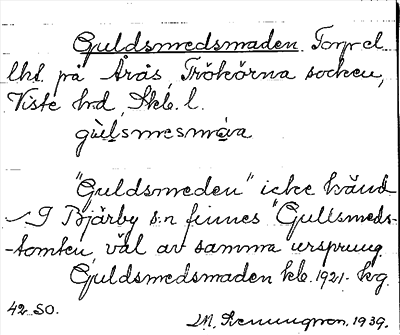 Guldsmedsmaden. Torp el.
lht. på Årås, Trökörna socken,
Viste hd, Skb. l.
gùlsmesmáva
"Guldsmeden" icke känd
I Bjärby s:n finnes "Gullsmeds-
-tomten, väl av samma ursprung.
Guldsmedsmaden kb. 1921. krg.
42 SO.
1939.